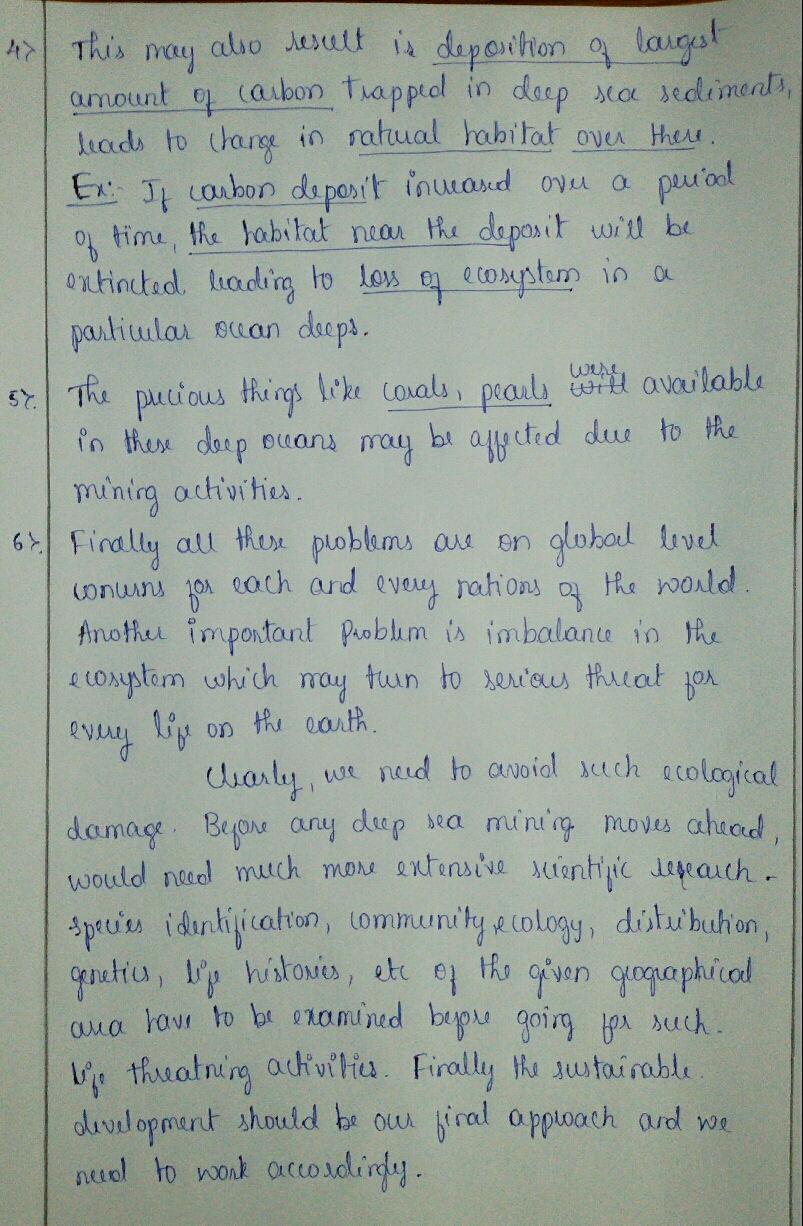 4> This may also result is deposition of largest
amount of carbon trapped in deep sea sediments,
leads to change in natural habitat over there.
Ex:- If carbon deposit increased over a period
of time, the habitat near the deposit will be
extincted leading to loss of ecosystem in a
particular ocean deeps.
5>. The precious things like corals, pearls were will available
in these deep oceans may be affected due to the
mining activities.
6>. Finally all these problems are on global level
concerns for each and every nations of the world.
Another important Problem is imbalance in the
ecosystem which may turn to serious threat for
every life on the earth.
Clearly, we need to avoid such ecological
damage. Before any deep sea mining moves ahead,
would need much more extensive scientific research -
species identification, community ecology, distribution,
genetics, life histories, etc of the given geographical
area have to be examined before going for such.
life threatning activities. Finally the sustainable.
development should be our final approach and we
need to work accordingly.